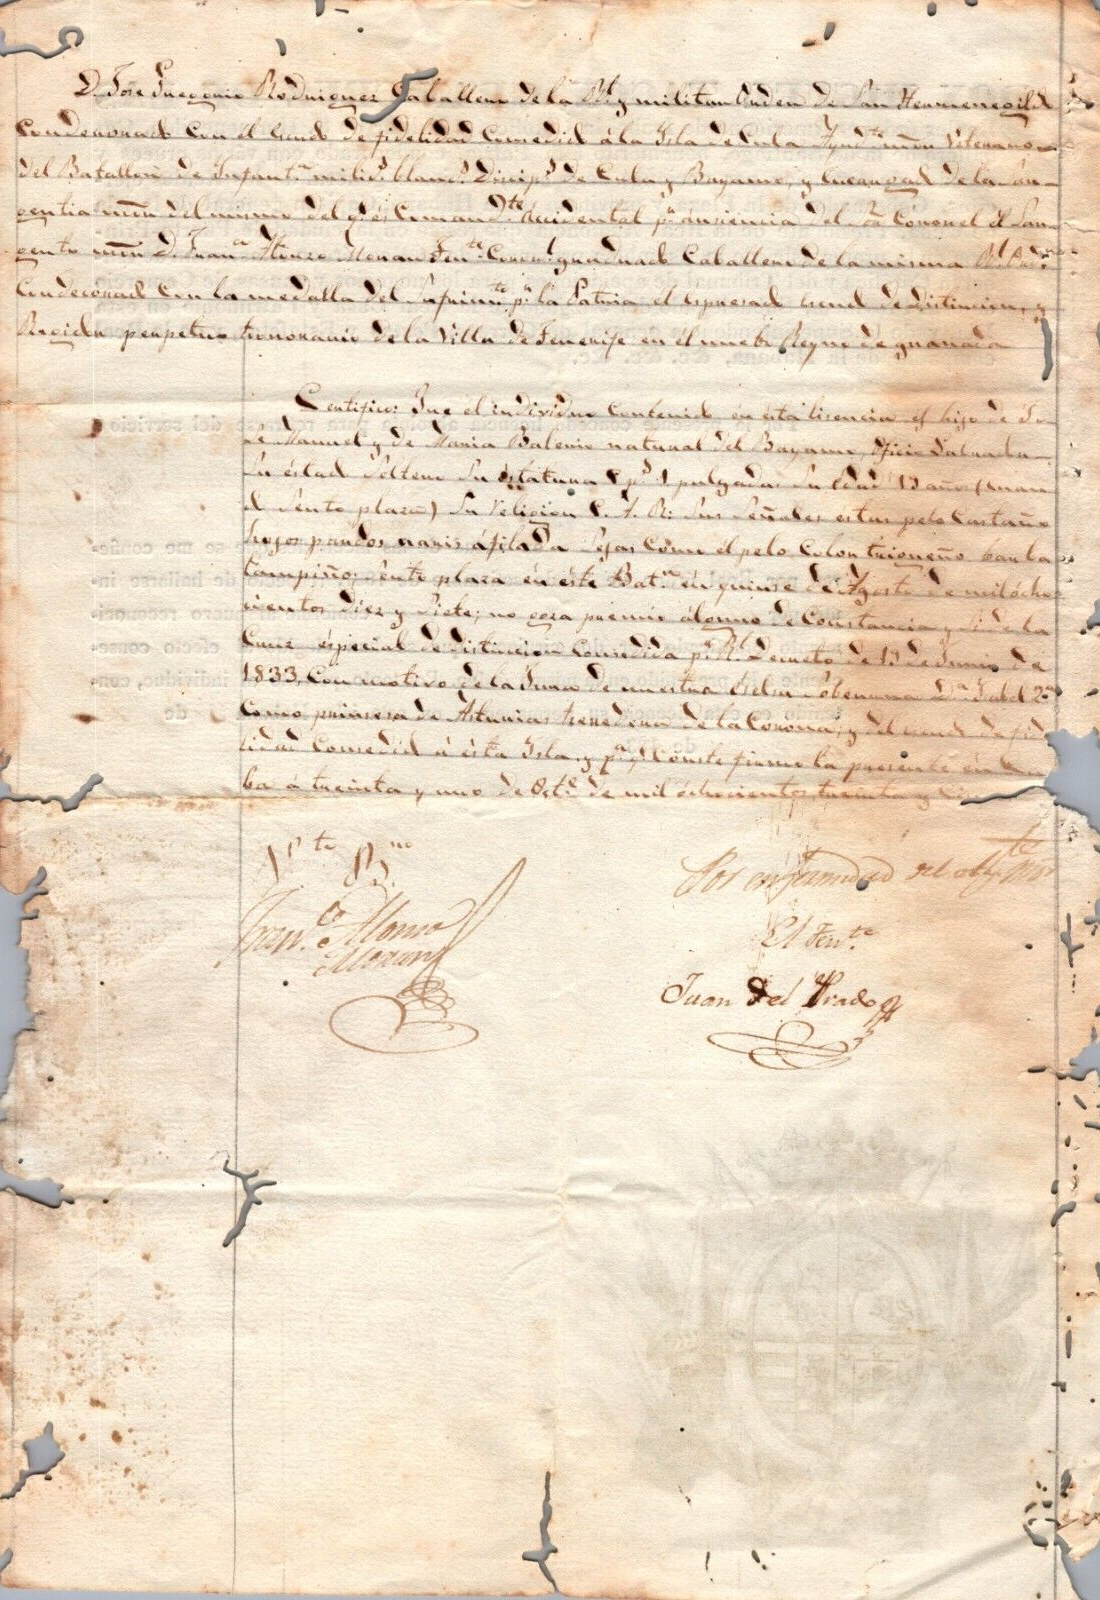 D. Jose Gregorio Rodriguez Caballero de la Rl. y militar Orden de San Hermenegildo
Condecorado con el Escudo de fidelidad Consedido á la Isla de Cuba Ayudte. mor. Veterano
del Batallon de Infanta. milis. blancs. Discips. de Cuba y Bayamo, y encargado de la Sar-
gentia mor. del mismo del qe. es Comandte. Accidental pr. ausencia del Sor. Coronel el Sar-
gento mor. D. Franco. Alonzo Moran Tente. Coronl. graduado Caballero de la misma Rl. Orden
Condecorado con la medalla del Sufrimto. pr. la Patria el espresado escudo de distincion, y
Regidor perpetuo honorario de la Villa de Tenerife en él nuebo Reyno de granada
Certifico: Que el individuo contenido en ésta lisencia es hijo de
Manuel y de Maria natural del Bayamo, oficio
Su éstado Soltero Su éstatura 5 ps. 1 pulgada: Su Edad 13 años (cuan
do Sento plaza) Su religion C. A. R: Sus Señales estas pelo Castaño
hojos pardos naris áfilada Sejas Como él pelo Color trigueño barba
lampiño; Sento plaza én éste Baton. én quinse de Agosto de mil ócho
cientos diez y Siete; no goza premio álguno de Constancia y si de la
Cruz éspecial de distincion Consedida pr. Rl. Decreto de 13 de Junio de
1833, Con motivo de la Jura de nuestra éxelsa Soberana Da. Isabel 2a.
Como prinsesa de Asturias heredera de la Corona; y del escudo de fide
lidad Consedido á ésta Isla, y pa. qe. Conste firmo la presente én Cu
ba á treinta y uno de Octe. de mil óchocientos, treinta y
Vto. Bno.
Por enfermedad del Aydte. Mor.
Franco. Alonso
Moran
El Tente.
Juan del Prado